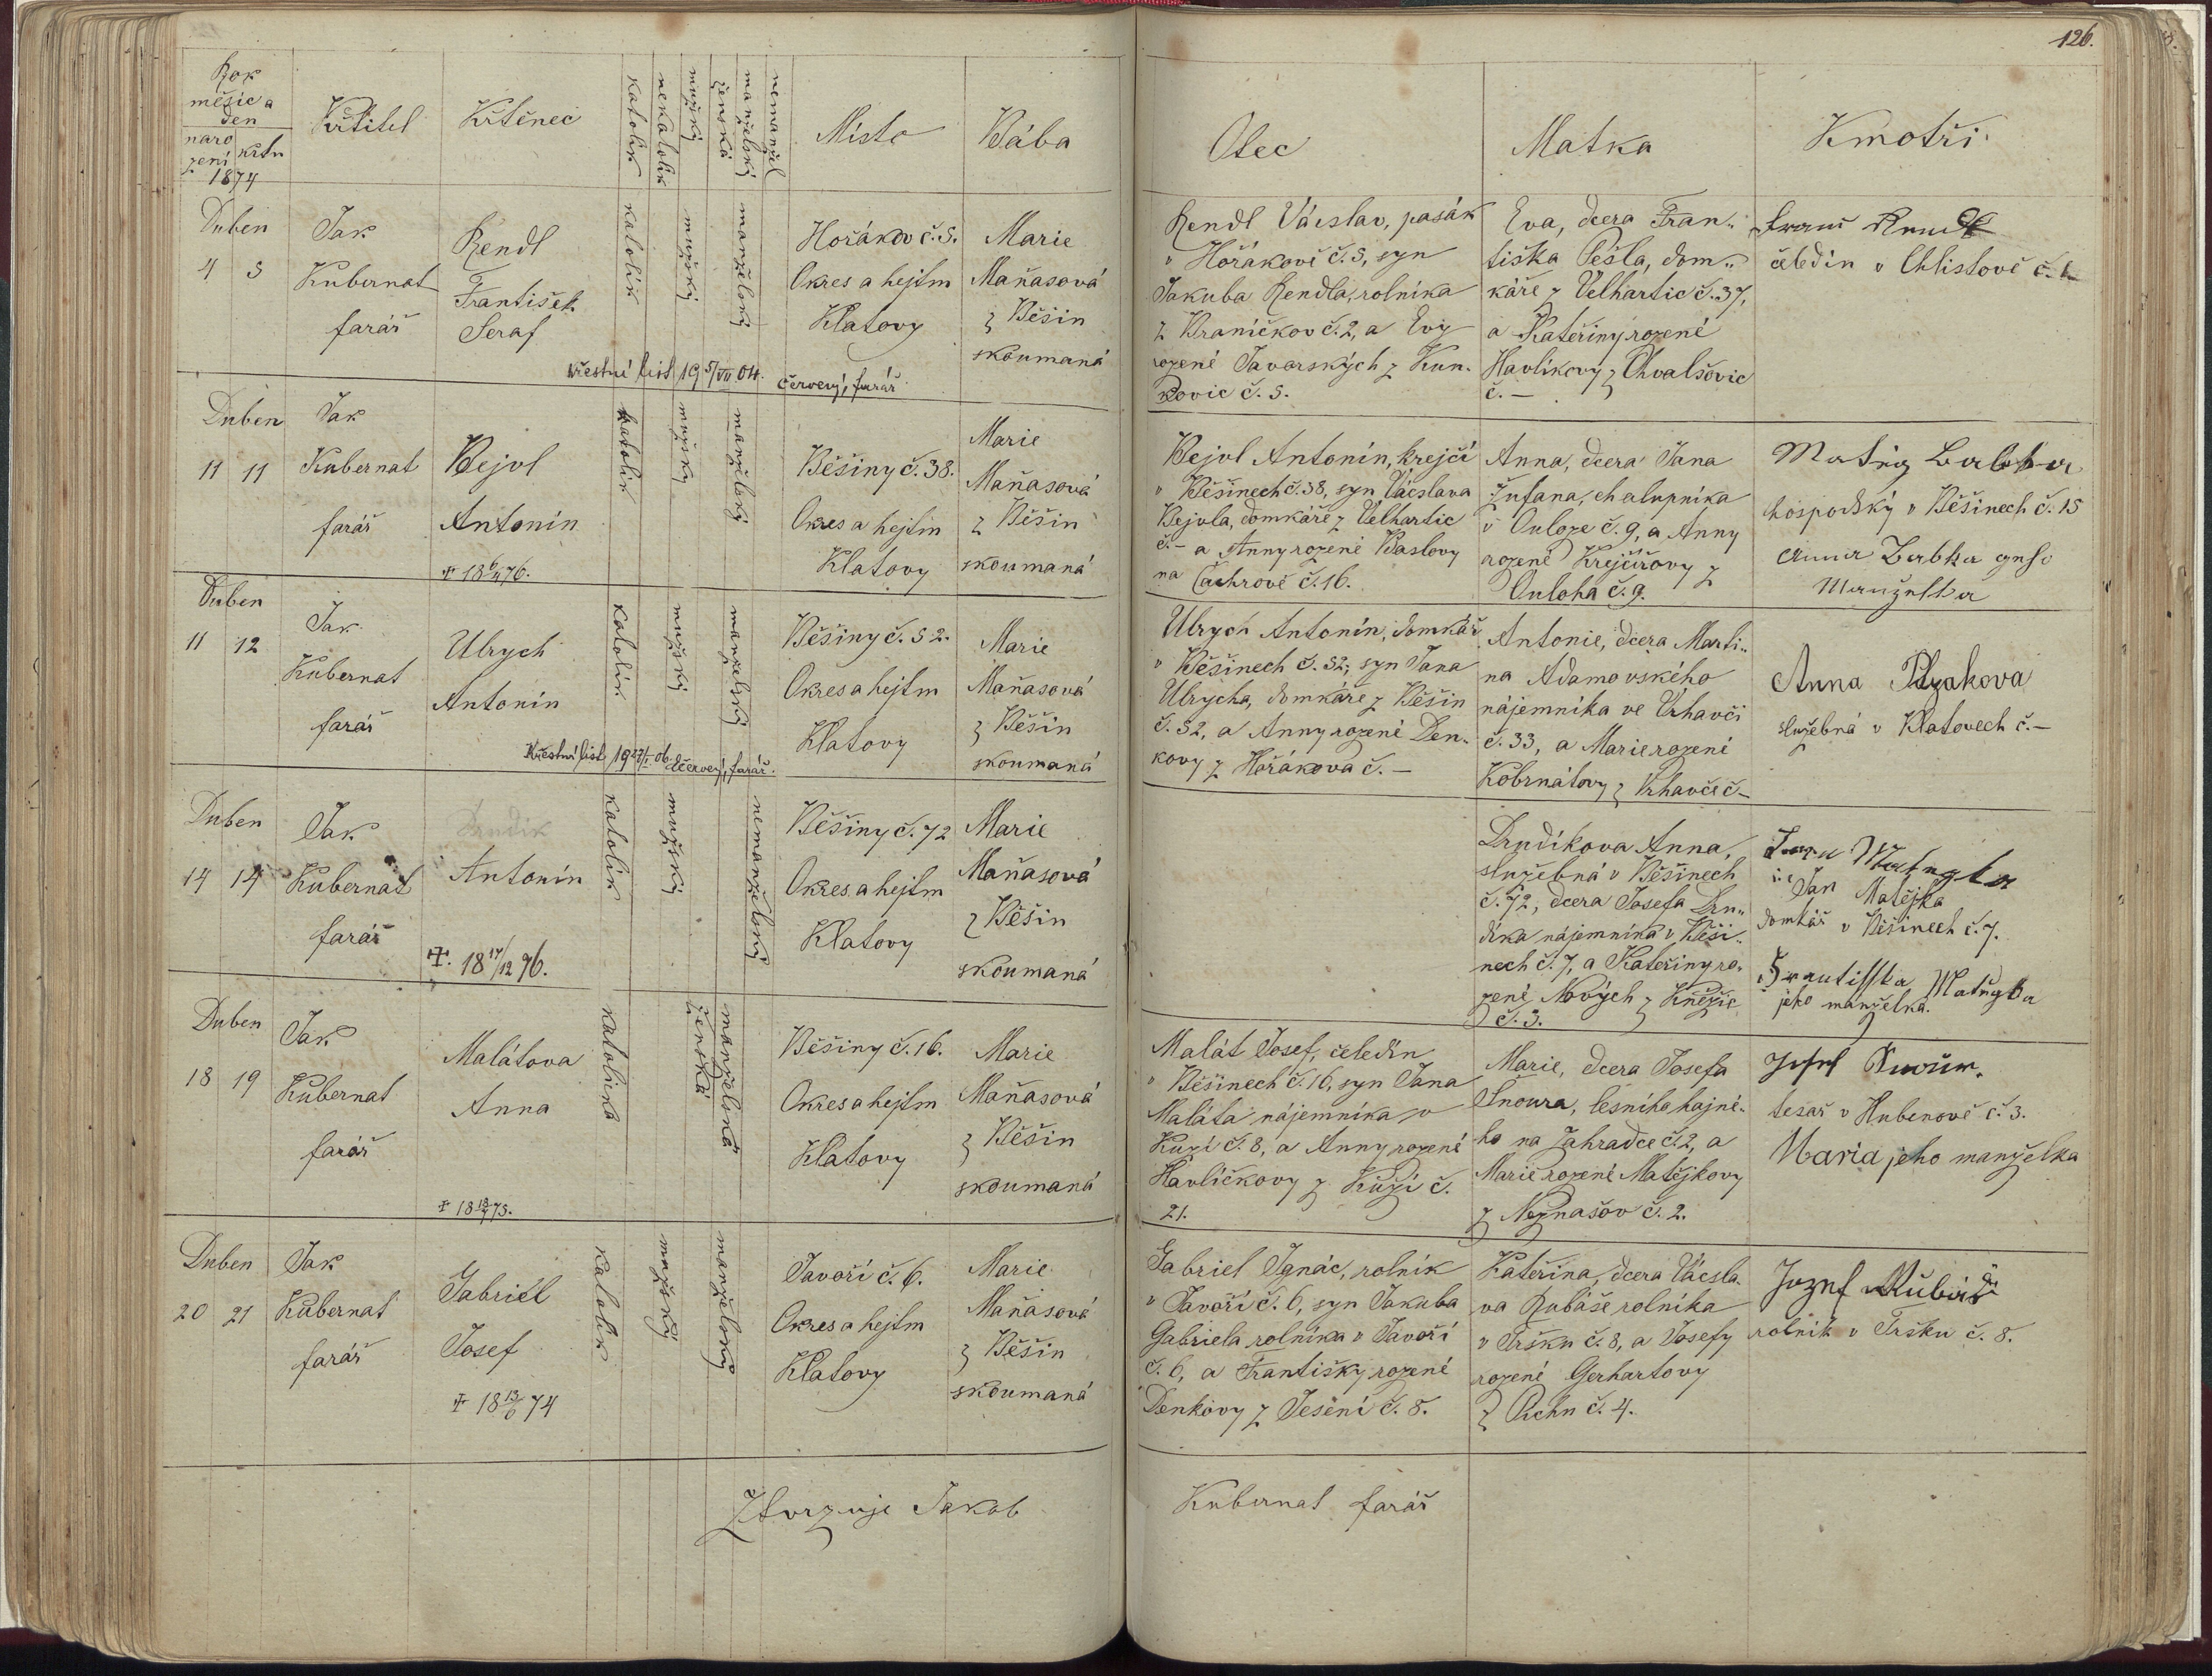 126.
Rok
měsíc a
den
naro
zení
křtu
1874
Křtitel
Křtěnec
katolík
nekatolík
mužský
ženská
manželský
nemanžel
Místo
Bába
Otec
Matka
Kmotři
Duben
4 5
Jak
Kubernat
farář
Rendl
František
Seraf
katolík
mužský
manželský
Hořákov č. 5.
Okres a hejtm
Klatovy
Marie
Maňasová
z Běšin
skoumaná
Křestní list 19 5/VII 04. Červený, farář.
Rendl Václav, pasák
v Hořákově č. 5, syn
Jakuba Rendla, rolníka
z Braníčkov č. 2, a Evy
rozené Javorských z Kun-
kovic č. 5.
Eva, dcera Fran-
tiška Pešla, dom-
káře z Velhartic č. 37,
a Kateřiny rozené
Havlíkovy z Chvalšovic
č. —
čeledín v Chlistově č.
Duben
11 11
Jak
Kubernat
farář
Bejvl
Antonín
+ 18 6/4 76.
katolík
mužský
manželský
Běšiny č. 38.
Okres a hejtm
Klatovy
Marie
Maňasová
z Běšin
skoumaná
Bejvl Antonín, krejčí
v Běšinech č. 38, syn Vácslava
Bejvla, domkáře z Velhartic
č. — a Anny rozené Baslovy
na Čachrově č. 16.
Anna, dcera Jana
Žufana, chalupníka
v Ouloze č. 9, a Anny
rozené Krejčířovy z
Ouloha č. 9.
hospodský v Běšinech č. 15
Manželka
Duben
11 12
Jak
Kubernat
farář
Ulrych
Antonín
katolík
mužský
manželský
Běšiny č. 52.
Okres a hejtm
Klatovy
Marie
Maňasová
z Běšin
skoumaná
Křestní list 19 27/I 06. Červený, farář.
Ulrych Antonín, domkář
v Běšinech č. 52, syn Jana
Ulrycha, domkáře z Běšin
č. 52, a Anny rozené Den-
kovy z Hořákova č. —
Antonie, dcera Marti-
na Adamovského
nájemníka ve Vrhavči
č. 33, a Marie rozené
Kobrnátovy z Vrhavče č —
Anna
služebná v Klatovech č. —
Duben
14 14
Jak
Kubernat
farář
Drudík
Antonín
+. 18 17/12 96.
katolík
mužský
nemanželský
Běšiny č. 72
Okres a hejtm
Klatovy
Marie
Maňasová
z Běšin
skoumaná
Drudíkova Anna,
služebná v Běšinech
č. 72, dcera Josefa Dru-
díka nájemníka v Běši-
nech č. 7, a Kateřiny ro-
zené Nových z Kněžic
č. 3.
Jan Matějka
domkář v Běšinech č. 7.
Frantisska Matěgka
jeho manželka.
Duben
18 19
Jak
Kubernat
farář
Malátova
Anna
+ 18 13/7 75.
katolička
ženská
manželská
Běšiny č. 16.
Okres a hejtm
Klatovy
Marie
Maňasová
z Běšin
skoumaná
Malát Josef, čeledín
v Běšinech č. 16, syn Jana
Maláta nájemníka v
Kuzí č. 8, a Anny rozené
Havlíčkovy z Kuzí č.
21.
Marie, dcera Josefa
Šnoura, lesního hajné-
ho na Zahradce č. 2, a
Marie rozené Matějkovy
z Neznašov č. 2.
Josef
tesař v Hubenově č. 3.
Maria jeho manželka
Duben
20 21
Jak
Kubernat
farář
Gabriel
Josef
+ 18 13/6 74
katolík
mužský
manželský
Javoří č. 6.
Okres a hejtm
Klatovy
Marie
Maňasová
z Běšin
skoumaná
Gabriel Ignác, rolník
v Javoří č. 6, syn Jakuba
Gabriela rolníka v Javoří
č. 6, a Františky rozené
Denkovy z Jesení č. 8.
Kateřina, dcera Václa-
va Kubáše rolníka
v Tršku č. 8, a Josefy
rozené Gerhartovy
z Puchu č. 4.
Jozef Kubáš
rolník v Tršku č. 8.
Ztvrzuje Jakob Kubernat farář